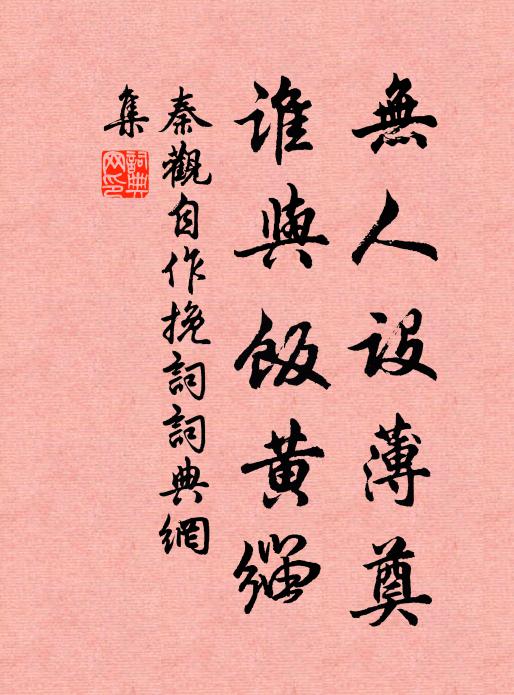 無人設薄奠
誰與飯黃緇
秦觀自作挽詞詞典網
集
詞典
网印